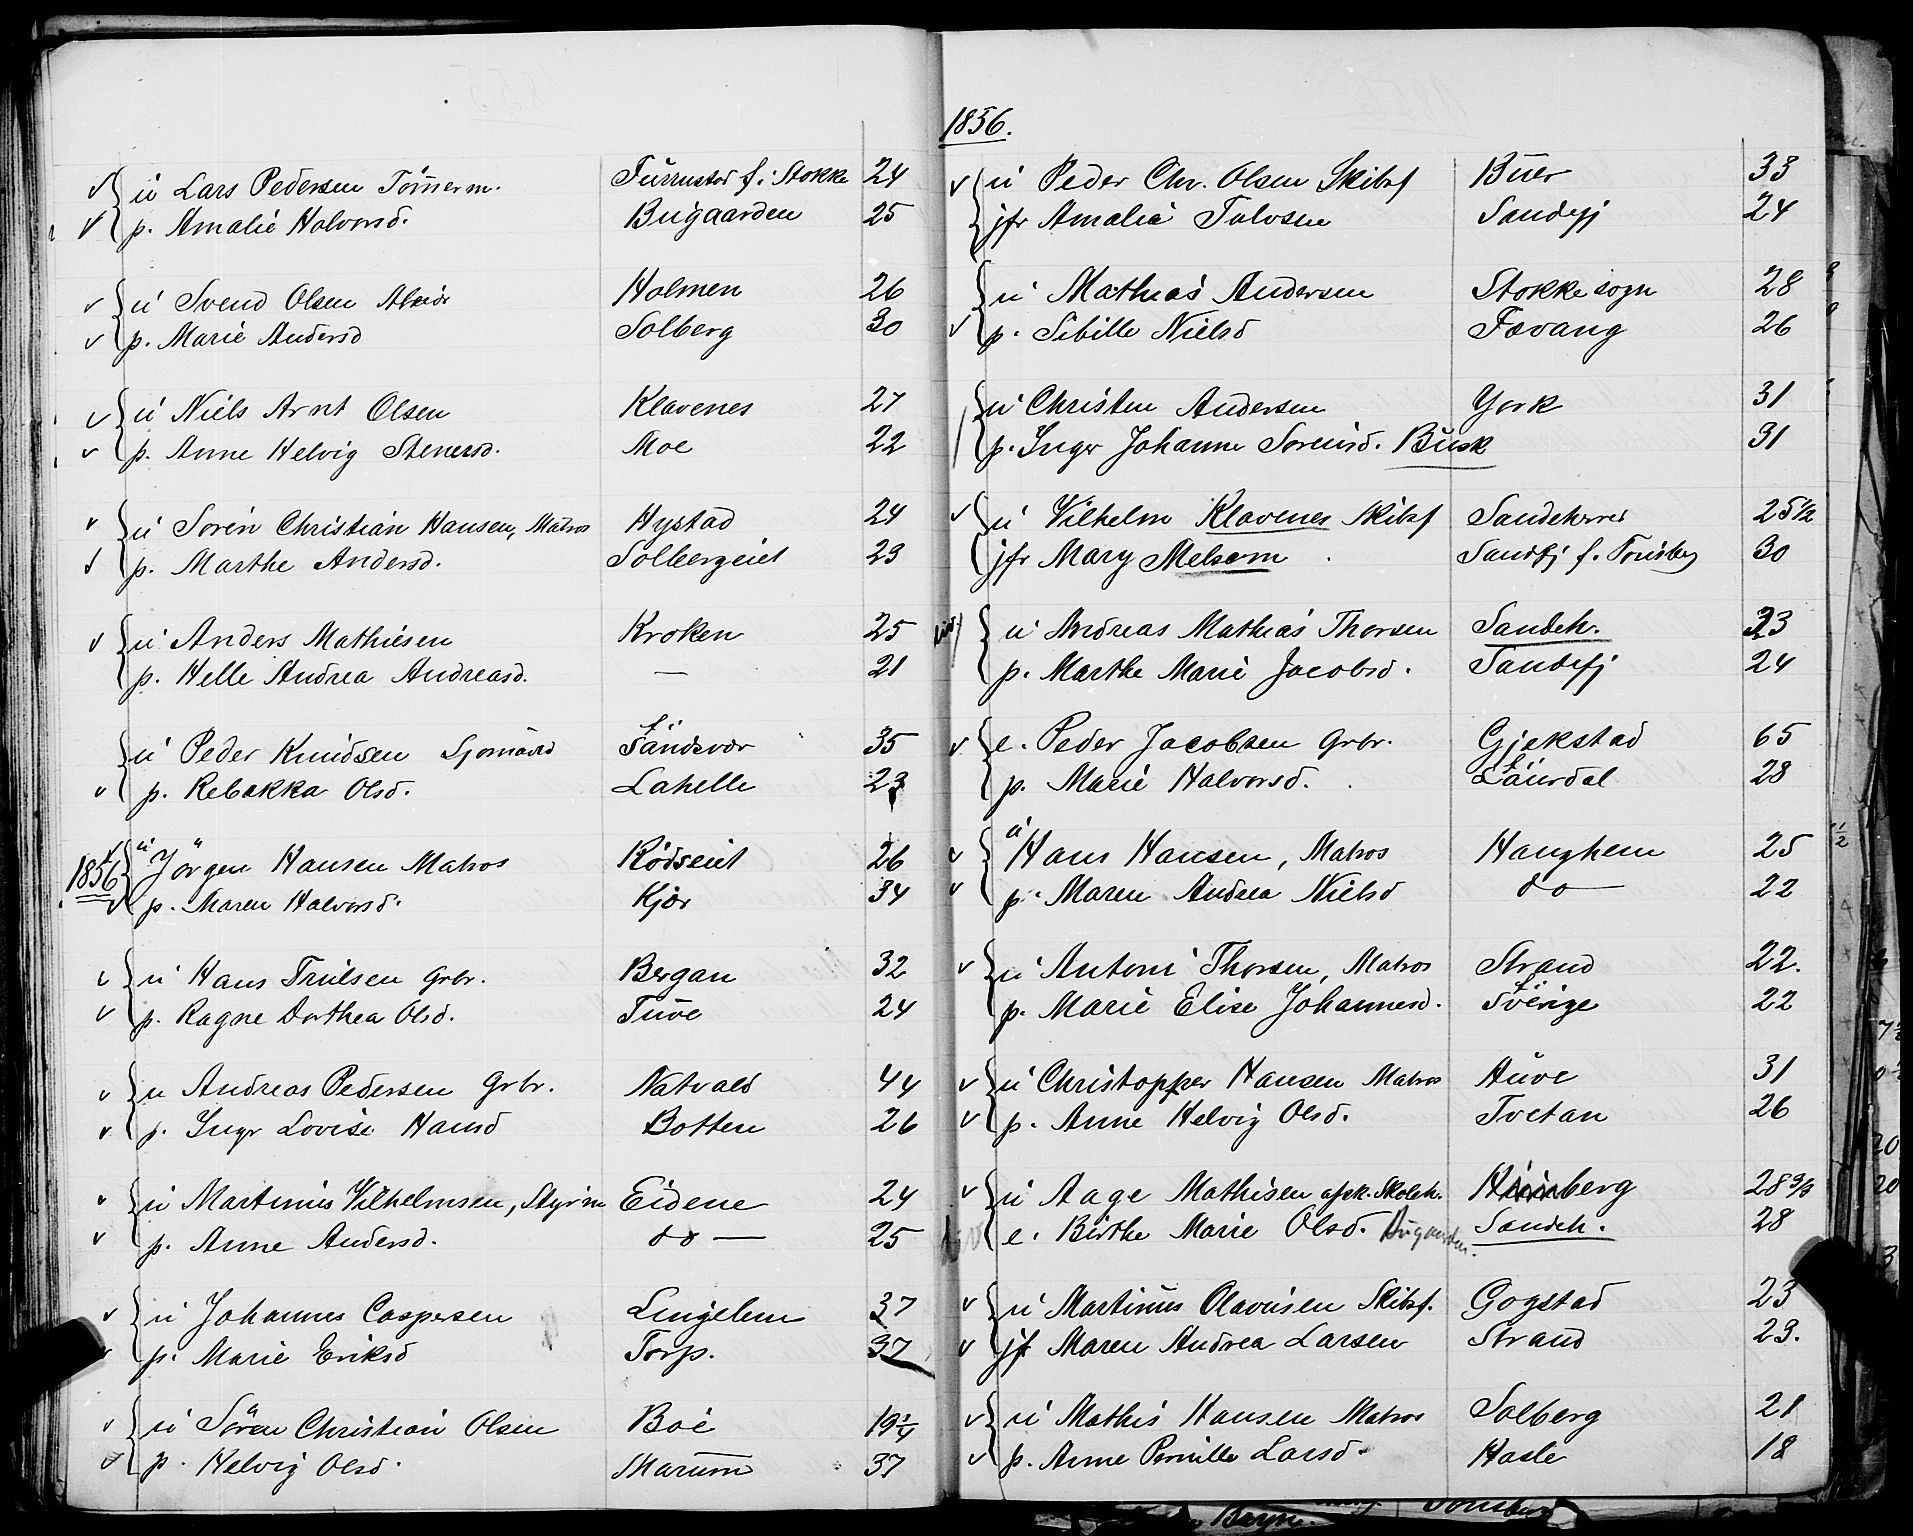 ü Lars Pedersen Tömerm. Furrustad f. i Stokke 24
p. Amalie Halvorsd. Bugaarden 25
ü Svend Olsen Holmen 26
p. Marie Andersd Solberg 30
ü Niels Arnt Olsen Klavenes 27
p. Anne Helvig Stenersd. Moe 22
ü Sören Christian Hansen, Matros Hystad 24
p. Marthe Andersd. Solbergeiet 23
ü Anders Mathiesen Kroken 25
p. Helle Andrea Andreasd. — 21
ü Peder Knudsen Sjomand f. Sandsvær 35
p. Rebakka Olsd. Lahelle 23
1856 ü Jörgen Hansen Matros Rödseiet 26
p. Maren Halvorsd. Kjær 34
ü Hans Trulsen Grbr. Bergan 32
p. Ragne Dorthea Olsd. Tuve 24
u Andreas Pedersen Grbr. Natvald 44
p. Inger Lovise Hansd Botten 26
ü Martinius Vilhelmsen, Styrm Eidene 24
p. Anne Andersd. do — 25
ü Johannes Caspersen Lingelem 37
p. Marie Eriksd Torp. 37
ü Sören Christian Olsen Boe 19¼
p. Helvig Olsd. Marum 37
1856.
ü Peder Chr. Olsen Skibsf Buer 33
jfr Amalia Tulvsen Sandefj 24
ü Mathias Andersen Stokke sogn 28
p. Sibille Nielsd Fævang 26
ü Christen Andersen York 31
p. Inger Johanne Sorensd. Busk 31
ü Vilhelm Klavenes Skibsf Sandeherred 25½
jfr Mary Melsom Sandfj f. Tönsberg 30
ü Andreas Mathias Thorsen Sandeh. 23
p. Marthe Marie Jacobsd. Sandefj 24
e. Peder Jacobsen Grbr. Gjekstad 65
p. Marie Halvorsd. f. Laurdal 28
ü Hans Hansen, Matros Haughem 25
p. Maren Andrea Nielsd do — 22
ü Antoni Thorsen, Matros Strand 22.
p. Marie Elise Johannesd. f. Sverige 22
ü Christopher Hansen Matros Auve 31
p. Anne Helvig Olsd. Tvetan 26
ü Aage Mathisen afsk. Skoleh. 28
e. Birthe Marie Olsd. Bugaarden. Sandeh. 28
ü Martinus Olavesen Skibsf. Gogstad 23
jf Maren Andrea Larsen Strand 23.
ü Mathis Hansen Matros Solberg 21
p. Anne Pernille Larsd. Hasle 18